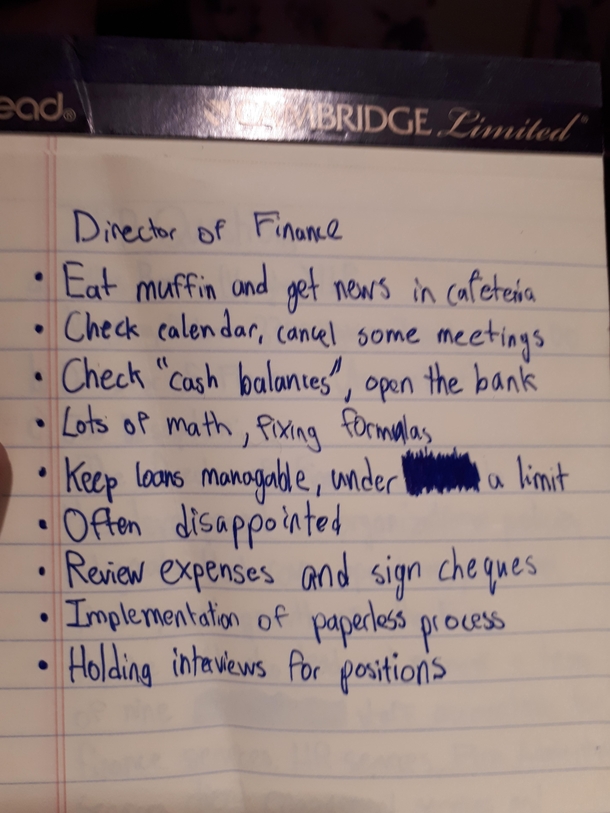 ead®
CAMBRIDGE Limited™
Director of Finance
• Eat muffin and get news in cafeteria
• Check calendar, cancel some meetings
• Check "cash balances", open the bank
• Lots of math, fixing formulas
• Keep loans managable, under a limit
• Often disappointed
• Review expenses and sign cheques
• Implementation of paperless process
• Holding interviews for positions